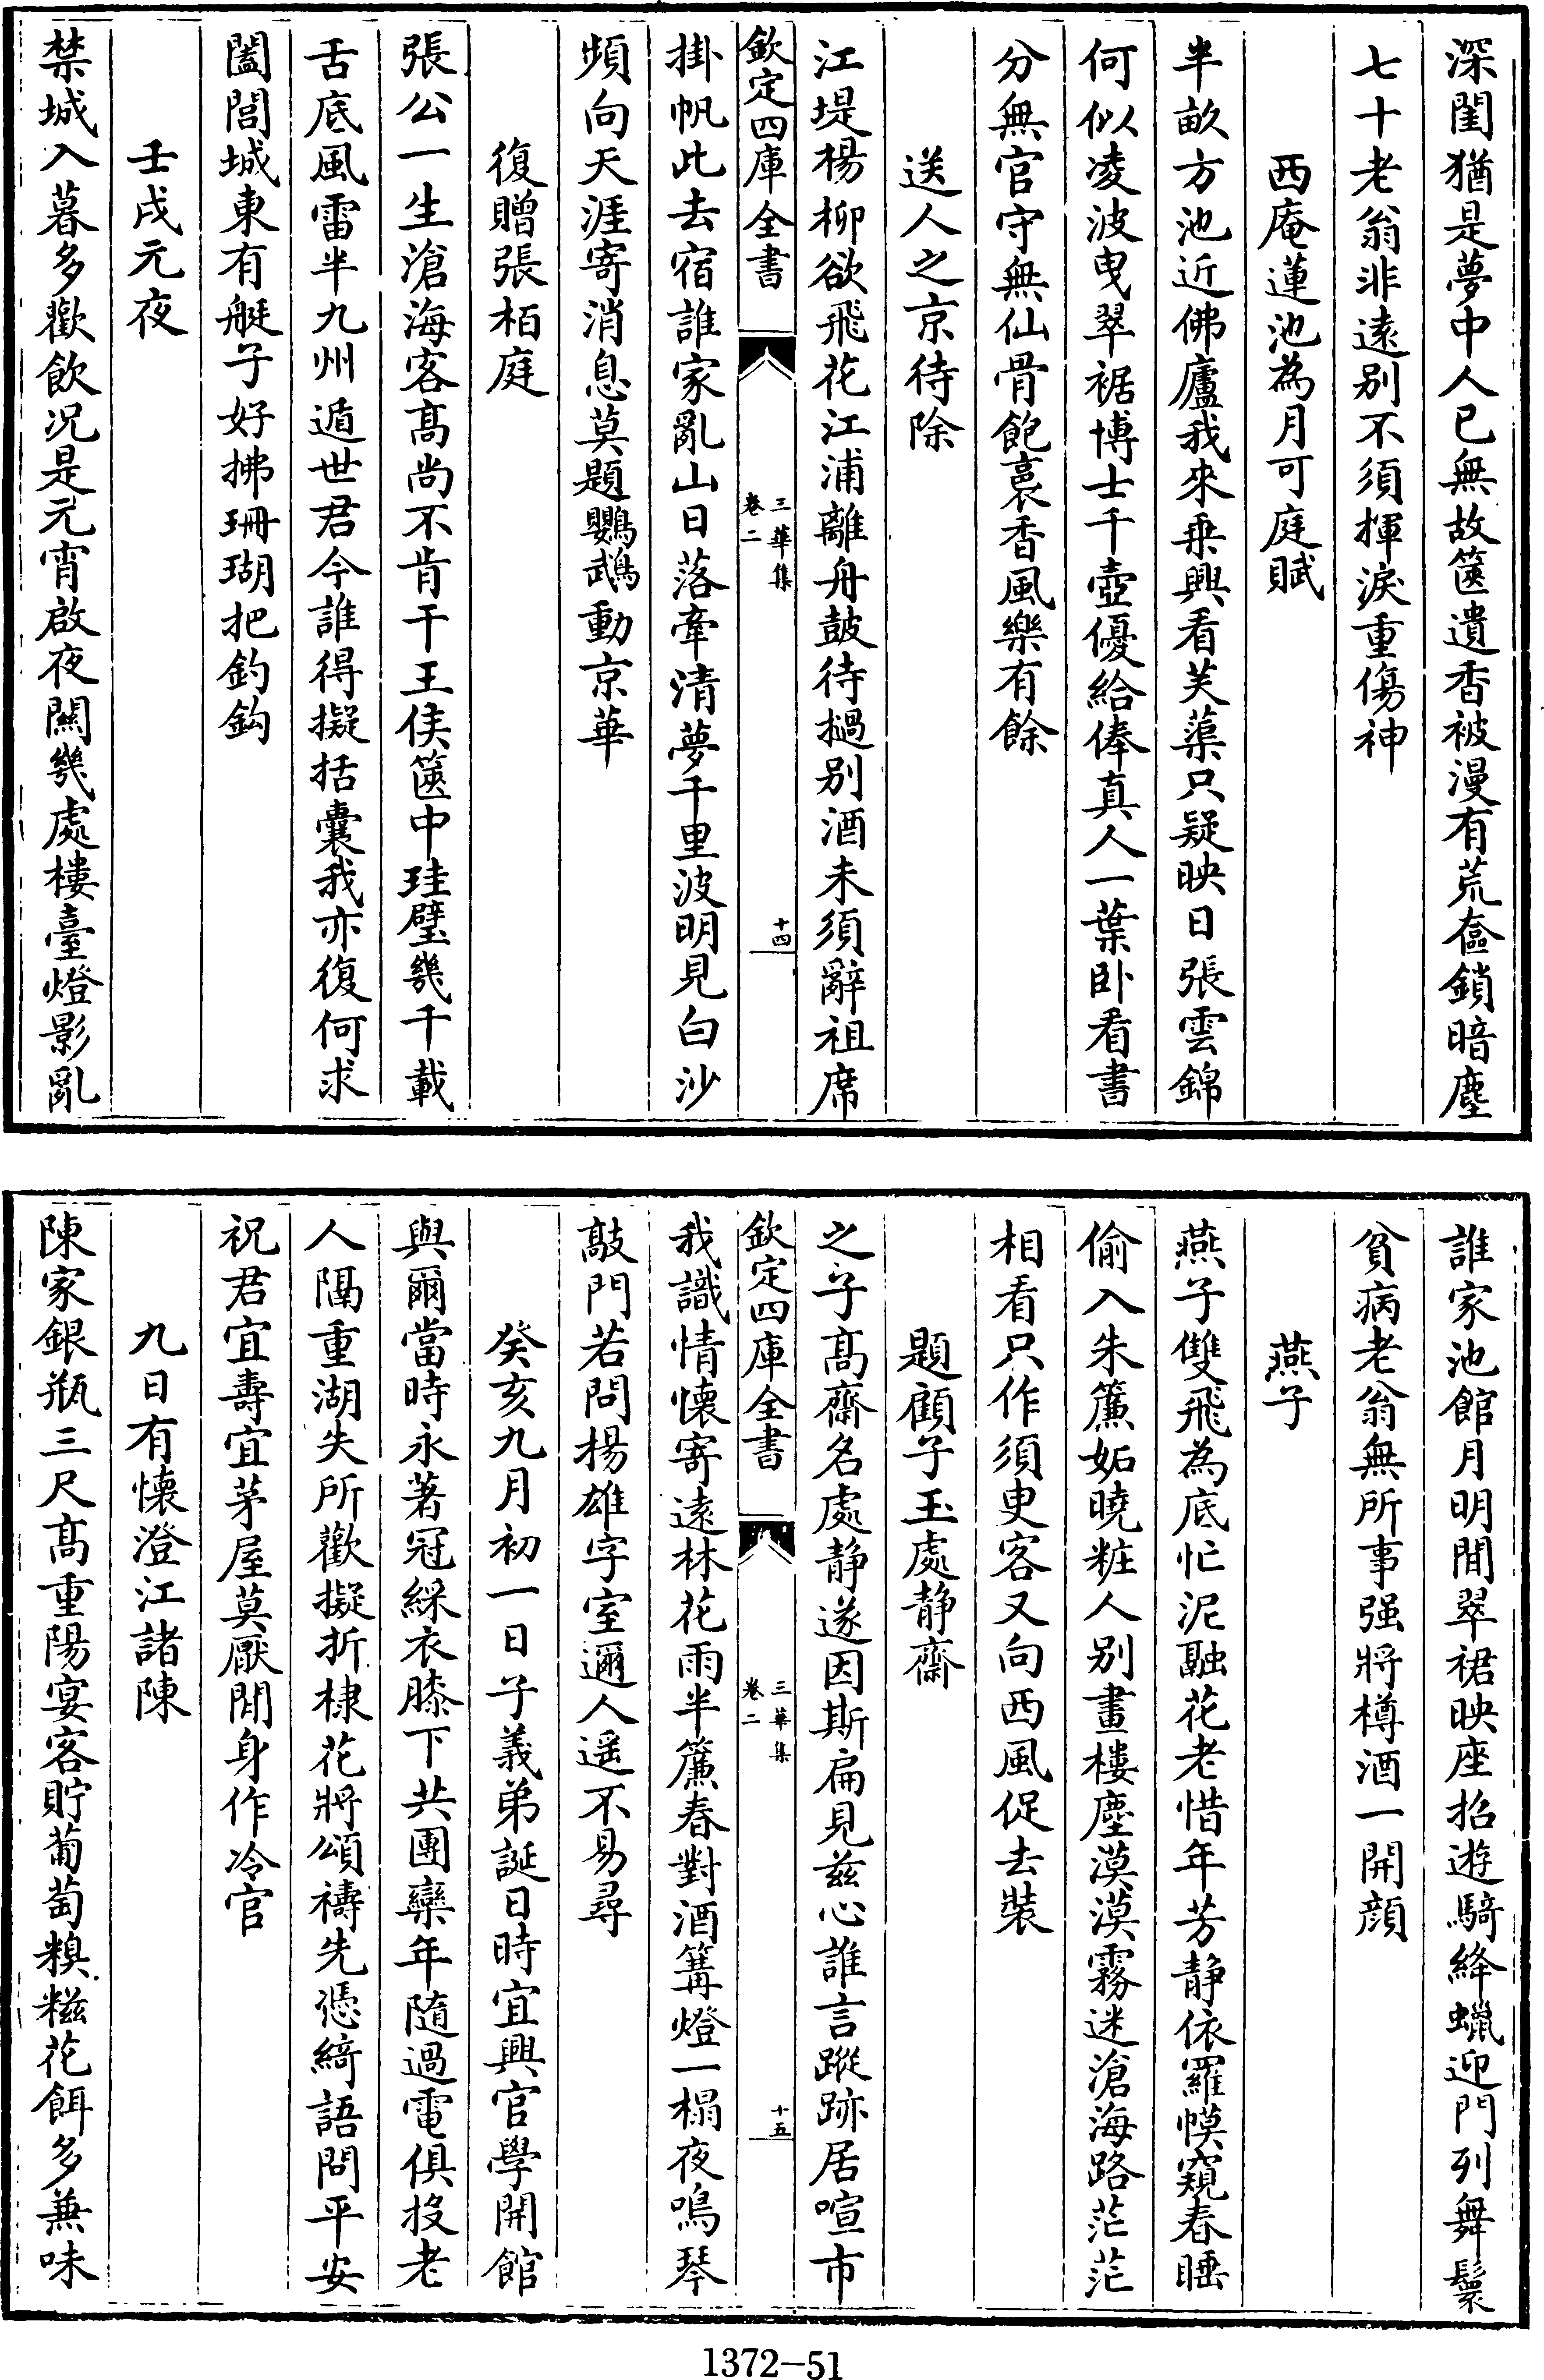 深閨猶是夢中人已無故篋遺香被漫有荒奩鎖暗塵
七十老翁非遠别不須揮淚重傷神
西庵蓮池為月可庭賦
半畝方池近佛廬我來乗興看芙蕖只疑映日張雲錦
何似凌波曳翠裾博士千壺優給俸真人一葉卧看書
分無官守無仙骨飽裛香風樂有餘
送人之京待除
江堤楊柳欲飛花江浦離舟鼓待撾别酒未須辭祖席
欽定四庫全書
三華集
卷二
十四
掛帆此去宿誰家亂山日落牽清夢千里波明見白沙
頻向天涯寄消息莫題鸚鵡動京華
復贈張栢庭
張公一生滄海客髙尚不肯干王侯篋中珪璧幾千載
舌底風雷半九州遁世君今誰得擬括囊我亦復何求
闔閭城東有艇子好拂珊瑚把釣鈎
壬戌元夜
禁城入暮多歡飲況是元宵啟夜闗幾處樓臺燈影亂
誰家池館月明閒翠裙映座招遊騎絳蠟迎門列舞鬟
貧病老翁無所事强將樽酒一開顔
燕子
燕子雙飛為底忙泥融花老惜年芳静依羅幙窺春睡
偷入朱簾妬曉粧人别畫樓塵漠漠霧迷滄海路茫茫
相看只作須臾客又向西風促去裝
題顧子玉處静齋
之子髙齋名處静遂因斯扁見兹心誰言蹤跡居喧市
欽定四庫全書
三華集
卷二
十五
我識情懐寄逺林花雨半簾春對酒篝燈一榻夜鳴琴
敲門若問楊雄字室邇人遥不易尋
癸亥九月初一日子義弟誕日時宜興官學開館
與爾當時永著冠綵衣膝下共團欒年隨過電俱投老
人隔重湖失所歡擬折棣花將頌禱先憑綺語問平安
祝君宜壽宜茅屋莫厭閒身作冷官
九日有懐澄江諸陳
陳家銀瓶三尺髙重陽宴客貯葡萄糗糍花餌多兼味
1372-51